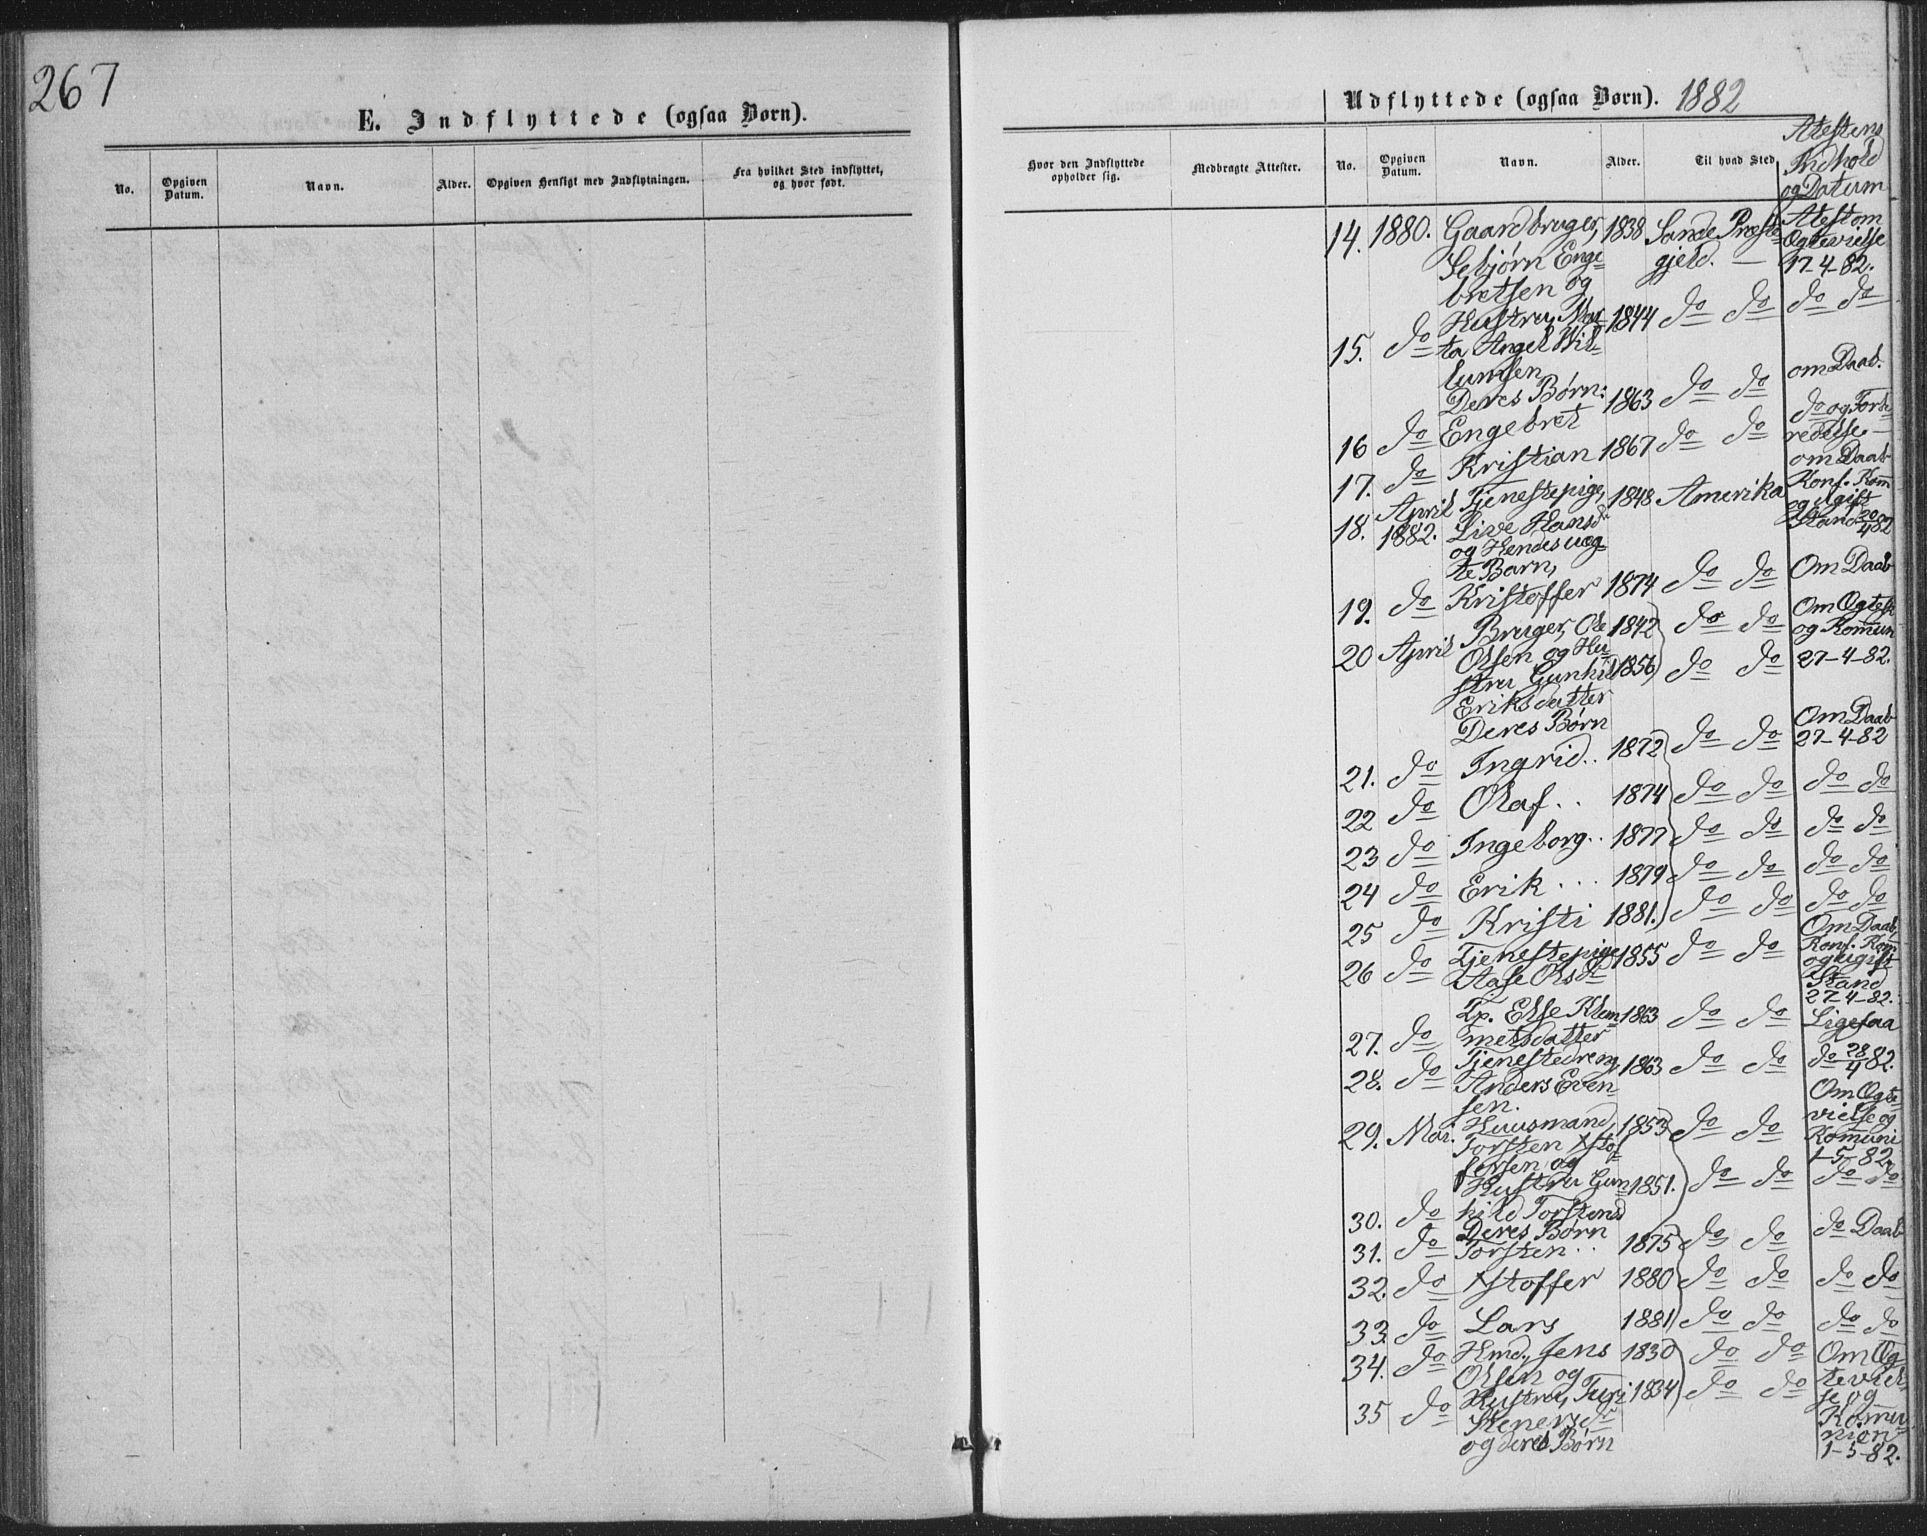 267
E. Indflyttede (ogsaa Børn).
No.
Opgiven Datum.
Navn.
Alder.
Opgiven Hensigt med Indflytningen.
Fra hvilket Sted indflyttet, og hvor født.
Hvor den Indflyttede opholder sig.
Medbragte Attester.
Udflyttede (ogsaa Børn). 1882
No.
Opgiven Datum.
Navn.
Alder.
Til hvad Sted
Atestens
Indhold
og Datum
14. 1880. Gaardbruger, 1838 Sande Præste- Atest om
Enge- gjeld. — Ægtevielse
bretsen og 17-4-82.
Hustru, Mar- 1844 do do do do
15. do ta Angel
Deres Børn: 1863 do do om Daab.
16 do Engebret do og Forbe-
17. do Kristian 1867 do do redelse.
om Daab
April Tjenestepige, 1848 Amerika Konf. Kom
18. 1882. Live Hansd og ugift
og Hendes uæg- Stand 20/4 82
te Barn,
19. do Kristoffer 1874 do do Om Daab
20 April Bruger, Ole 1842 do do Om Ægtesk
Olsen og Hu- og Komun
stru Gunhild 1856 do do 27-4-82.
Eriksdatter
Deres Børn Om Daab
21. do Ingrid.. 1872 do do 27-4-82
22 do Olaf.. 1874 do do do do
23 do Ingeborg.. 1877 do do do do
24 do Erik... 1879 do do do do
25 do Kristi 1881. do do do do
Om Daab,
26 do Tjenestepige 1855 do do Konf. Kom
Aase Olsd og ugift
Stand
27-4-82.
Tp. Else Klem- 1863 do do Ligesaa
27. do metsdatter
28. do Tjenestedreng 1863 do do do 28/4 82.
Anders Even-
sen. Om Ægte-
29. Mai. Huusmand, 1853 do do vielse og
Torsten Xstof- Komuni
fersen og 1-5-82
Hustru Gun- 1851. do do do do
30. do hild Torstensd
Deres Børn
31. do Torsten.. 1875 do do do Daab
32. do Xstoffer 1880 do do do do
33. do Lars 1881 do do do do
34. do Hmd., Jens 1830 do do Om Æg-
Olsen og teviel-
35 do Hustru, Turi 1834 do do se og
Stenersd Komu-
og deres Børn nion
1-5-82.